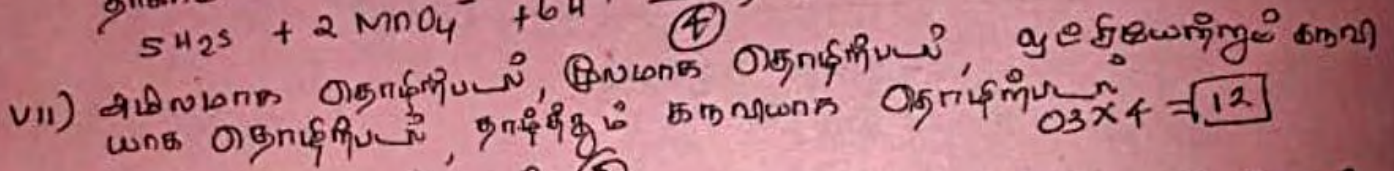 5 H2S + 2 MnO4 + 6H
④
VII) அமிலமாக தொழிற்படல், மூலமாக தொழிற்படல், கருவி
யாக தொழிற்படல், தாழ்த்தும் கருவியாக தொழிற்படல்
03 x 4 = 12